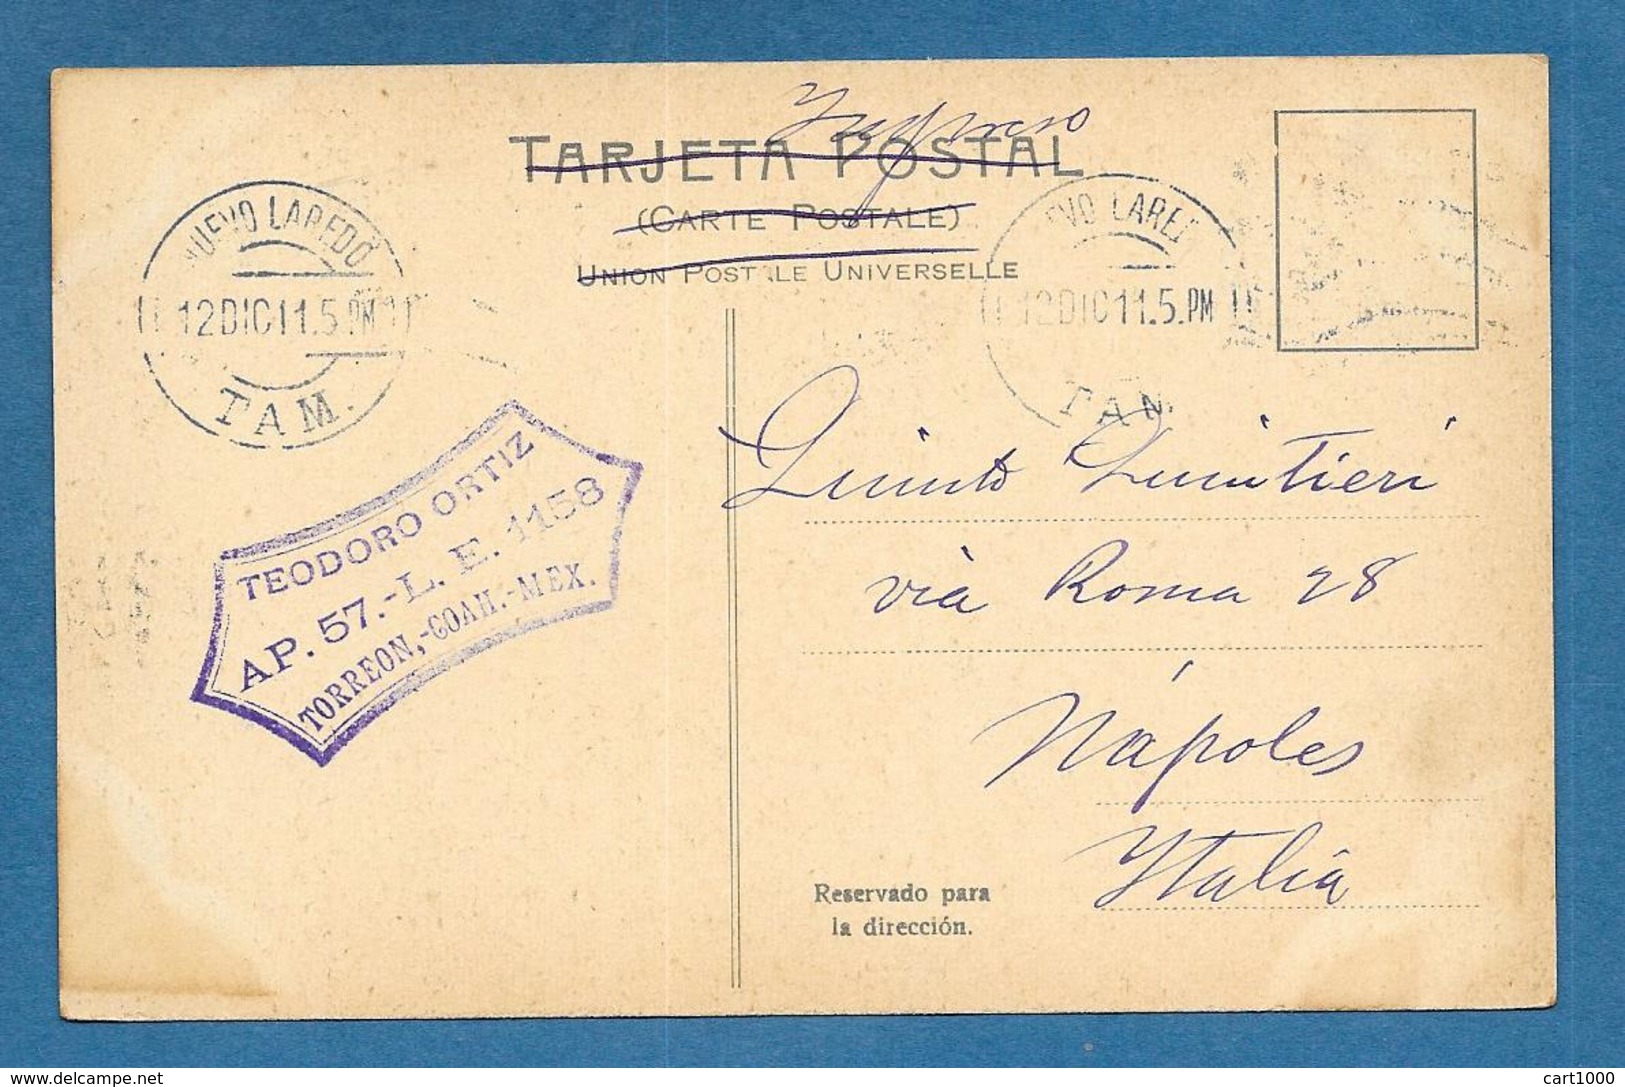 Impreso
TARJETA POSTAL
(CARTE POSTALE)
UNION POSTALE UNIVERSELLE
NUEVO LAREDO
12 DIC 11.5 PM
TAM.
EVO LARED
12 DIC 11.5.PM
TAM.
TEODORO ORTIZ
AP. 57.-L. E. 1158
TORREON,-COAH.-MEX.
Quinto Quintieri
via Roma 28
Nápoles
Italia
Reservado para
la dirección.
delcampe.net
cart1000